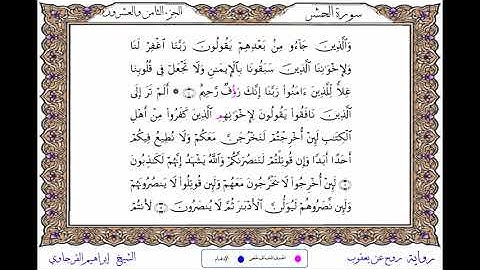 سورة الحشر الجزء الثامن والعشرون
وَالَّذِينَ جَاءُو مِنْ بَعْدِهِمْ يَقُولُونَ رَبَّنَا اغْفِرْ لَنَا
وَلِإِخْوَانِنَا الَّذِينَ سَبَقُونَا بِالْإِيمَانِ وَلَا تَجْعَلْ فِي قُلُوبِنَا
غِلًّا لِّلَّذِينَ ءَامَنُوا رَبَّنَا إِنَّكَ رَؤُفٌ رَّحِيمٌ ۞ أَلَمْ تَرَ إِلَى
الَّذِينَ نَافَقُوا يَقُولُونَ لِإِخْوَانِهِمُ الَّذِينَ كَفَرُوا مِنْ أَهْلِ
الْكِتَابِ لَئِنْ أُخْرِجْتُمْ لَنَخْرُجَنَّ مَعَكُمْ وَلَا نُطِيعُ فِيكُمْ
أَحَدًا أَبَدًا وَإِن قُوتِلْتُمْ لَنَنصُرَنَّكُمْ وَاللَّهُ يَشْهَدُ إِنَّهُمْ لَكَاذِبُونَ
لَئِنْ أُخْرِجُوا لَا يَخْرُجُونَ مَعَهُمْ وَلَئِن قُوتِلُوا لَا يَنصُرُونَهُمْ
وَلَئِن نَّصَرُوهُمْ لَيُوَلُّنَّ الْأَدْبَارَ ثُمَّ لَا يُنصَرُونَ لَأَنتُمْ
رواية روح عن يعقوب الإدغام الشيخ إبراهيم الفرجاوي